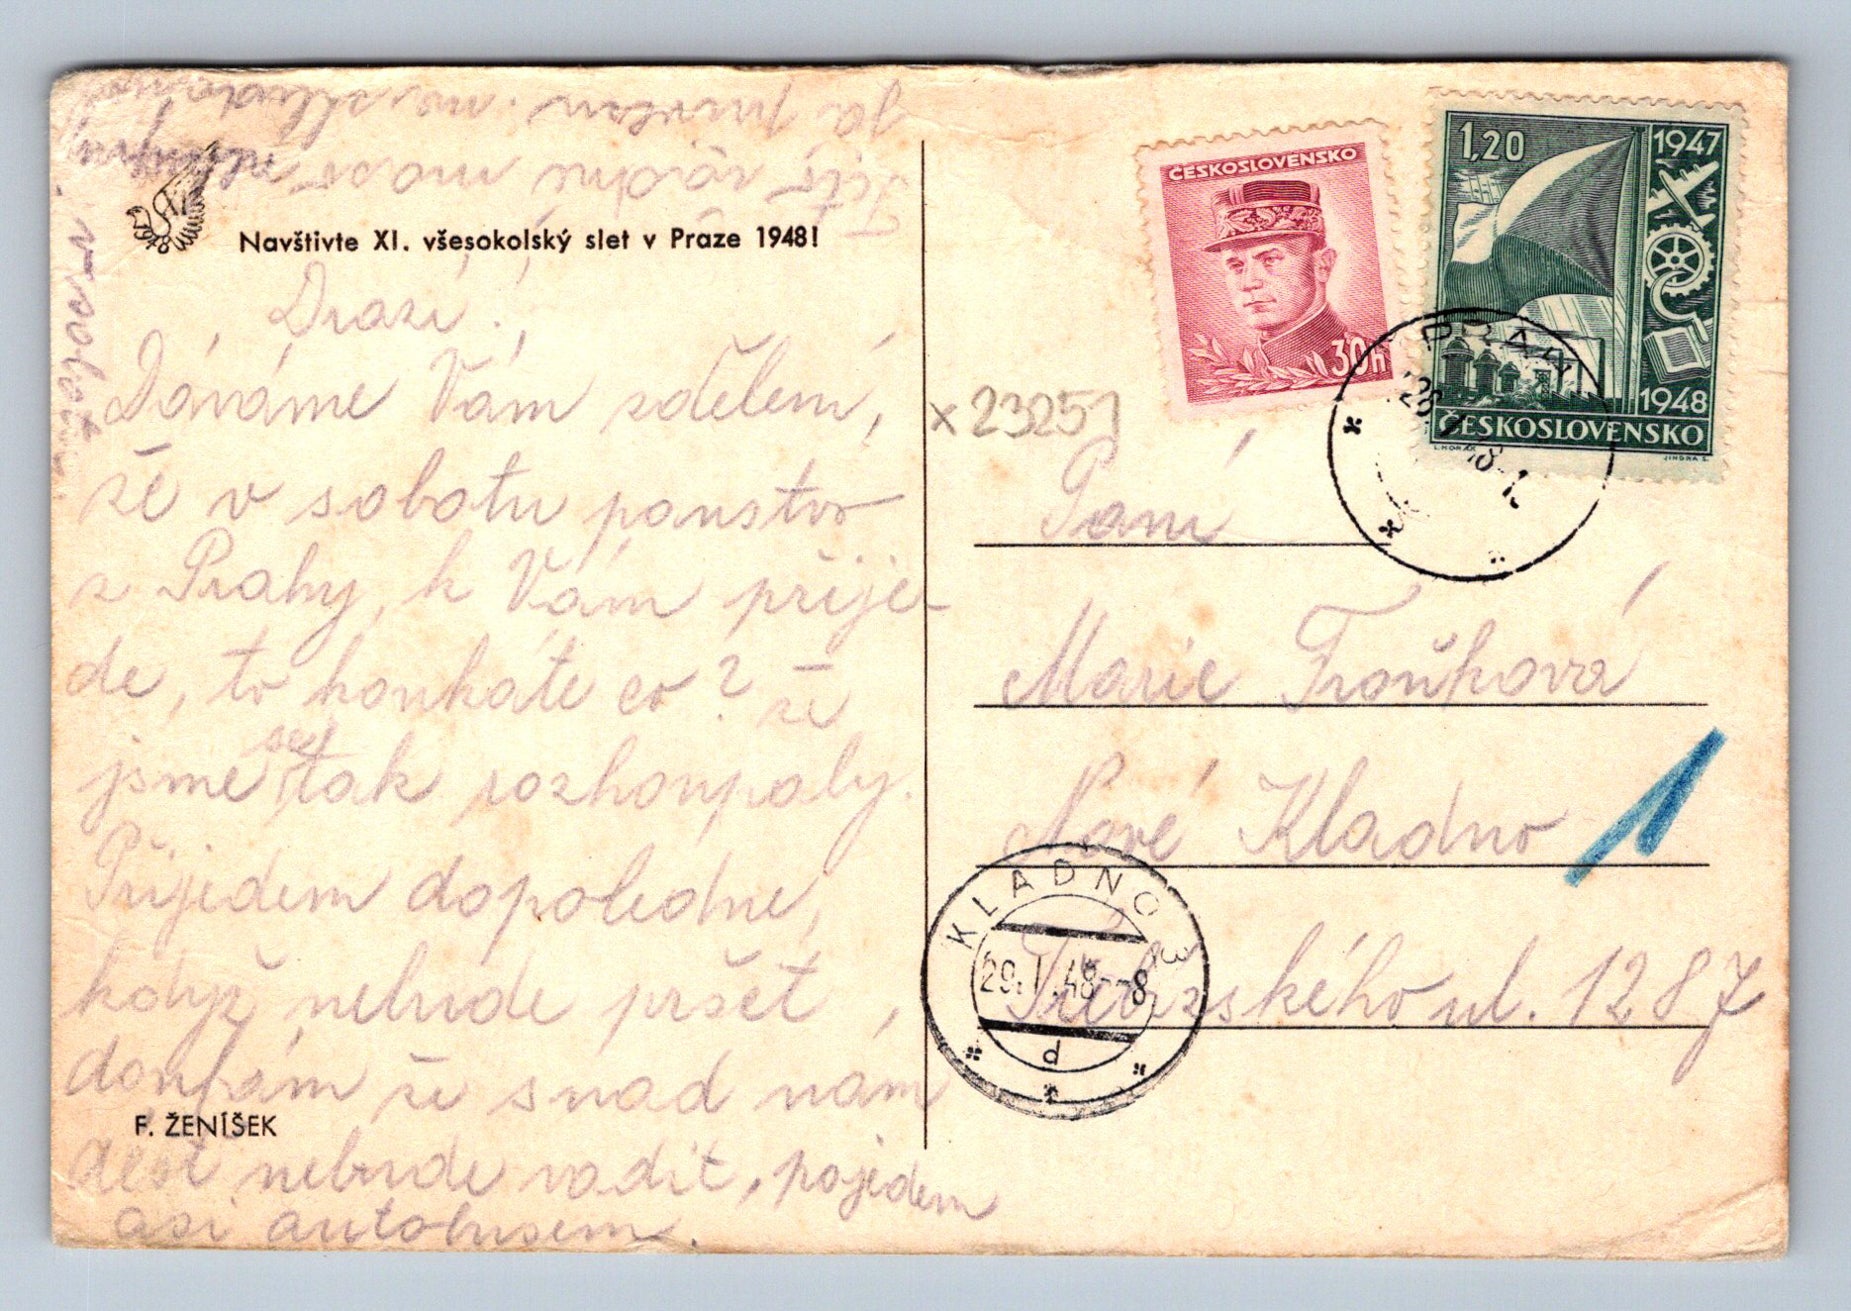 Navštivte XI. všesokolský slet v Praze 1948!
Drazí!
Dáváme Vám sdělení,
že v sobotu panstvo
z Prahy k Vám přije-
de, to koukáte co? že
jsme se tak rozhoupaly.
Přijedem dopoledne,
když nebude pršet,
doufám že snad nám
déšť nebude vadit, pojedem
asi autobusem.
F. ŽENÍŠEK
x 23251
ČESKOSLOVENSKO
30h
1,20
1947
1948
ČESKOSLOVENSKO
PRAHA
Paní
Marie Troňková
Nové Kladno
1
Třebízského ul. 1287
KLADNO 3
29.I.48-8
d